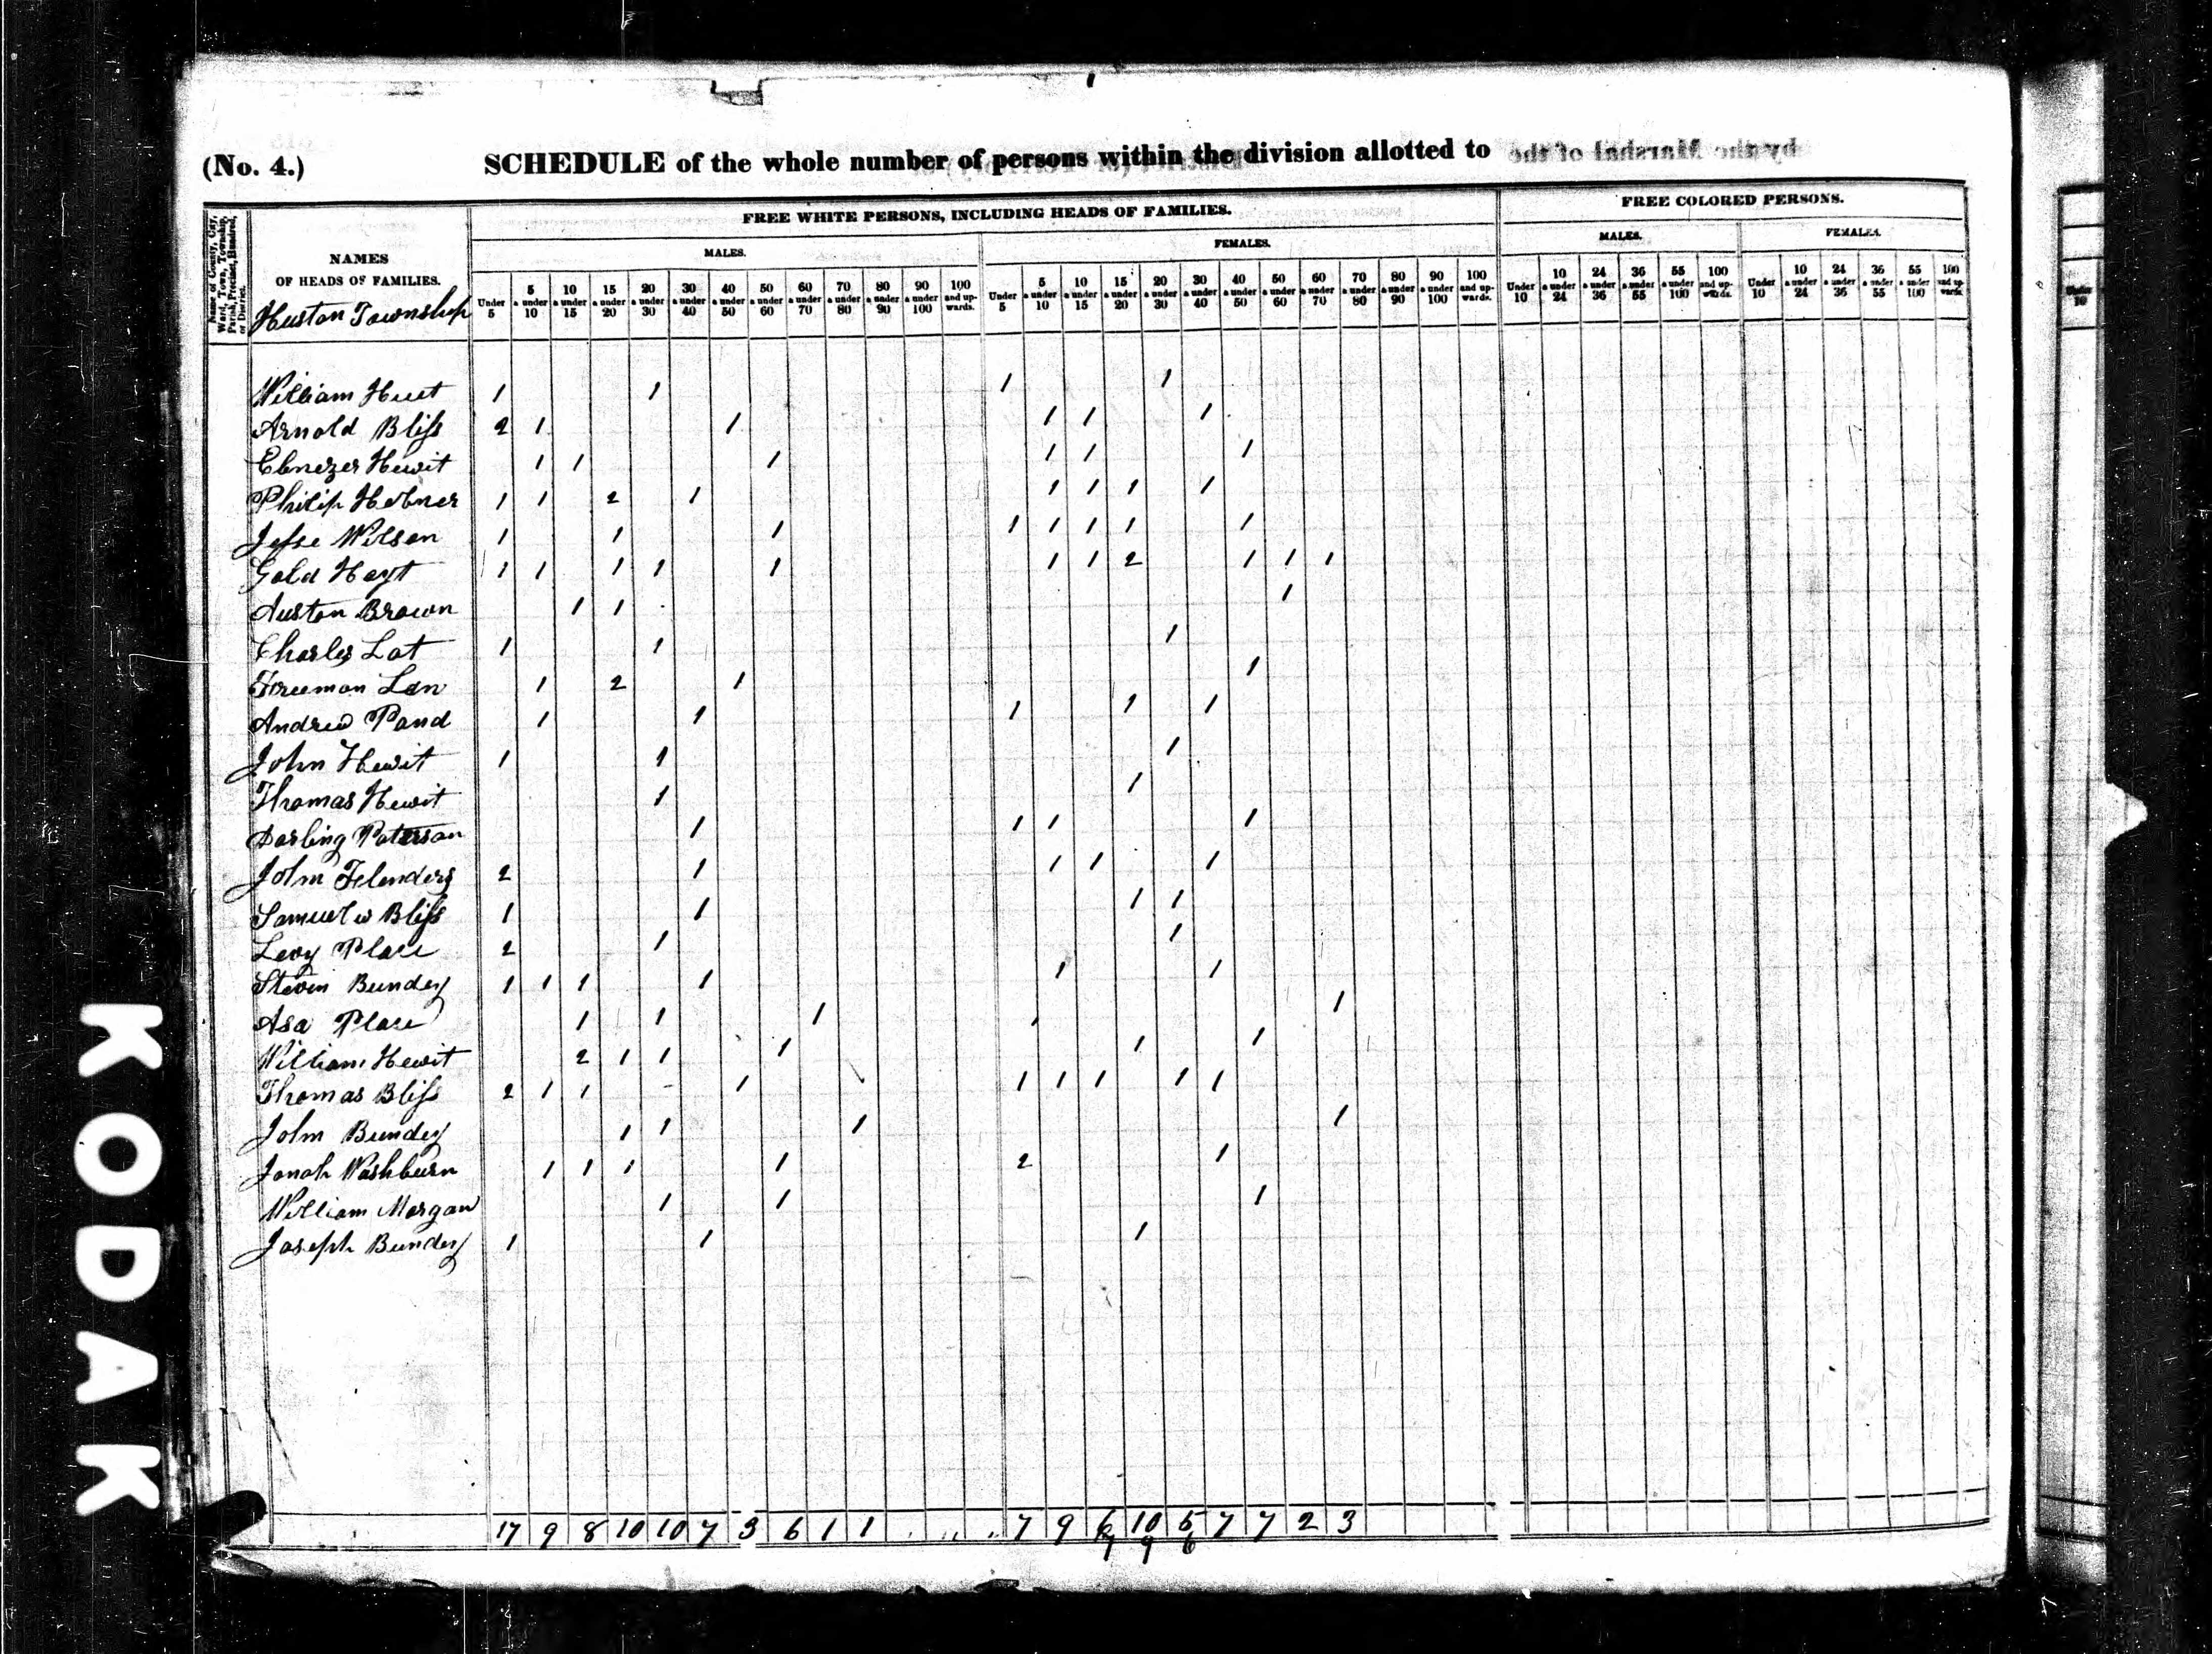 (No. 4.) SCHEDULE of the whole number of persons within the division allotted to by the Marshal of the
Name of County, City, Ward, Town, Township, Parish, Precinct, Hundred, or District.
NAMES OF HEADS OF FAMILIES.
FREE WHITE PERSONS, INCLUDING HEADS OF FAMILIES.
FREE COLORED PERSONS.
MALES. FEMALES. MALES. FEMALES.
Under 5 5 & under 10 10 & under 15 15 & under 20 20 & under 30 30 & under 40 40 & under 50 50 & under 60 60 & under 70 70 & under 80 80 & under 90 90 & under 100 100 and upwards.
Under 5 5 & under 10 10 & under 15 15 & under 20 20 & under 30 30 & under 40 40 & under 50 50 & under 60 60 & under 70 70 & under 80 80 & under 90 90 & under 100 100 and upwards.
Under 10 10 & under 24 24 & under 36 36 & under 55 55 & under 100 100 and upwards.
Under 10 10 & under 24 24 & under 36 36 & under 55 55 & under 100 100 and upwards.
Under 10
Huston Township
William Huet 1 1 1 1
Arnold Bliss 2 1 1 1 1 1
Ebenezer Hewit 1 1 1 1 1 1
Philip Hebner 1 1 2 1 1 1 1 1
Jesse Wilson 1 1 1 1 1 1 1 1
Gold Hoyt 1 1 1 1 1 1 1 2 1 1 1
Auston Brown 1 1 1
Charles Lot 1 1 1
Freeman Lan 1 2 1 1
Andrew Pond 1 1 1 1 1
John Hewit 1 1 1
Thomas Hewit 1 1
Darling Paterson 1 1 1 1
John Flenders 2 1 1 1 1
Samuel w Bliss 1 1 1 1
Levy Place 2 1 1
Steven Bundey 1 1 1 1 1 1
Asa Place 1 1 1 1 1
William Hewit 2 1 1 1 1 1
Thomas Bliss 2 1 1 1 1 1 1 1 1
John Bundey 1 1 1 1
Jonah Washburn 1 1 1 1 2 1
William Morgan 1 1 1
Joseph Bundey 1 1 1
17 9 8 10 10 7 3 6 1 1 7 9 6 10 5 7 7 2 3
9 9 6
KODAK